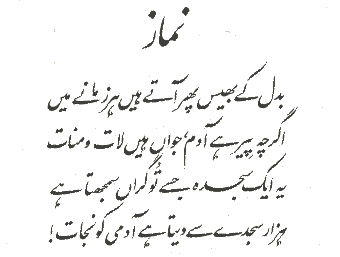 نماز
بدل کے بھیس پھر آتے ہیں ہر زمانے میں
اگرچہ پیر ہے آدم، جواں ہیں لات و منات
یہ ایک سجدہ جسے تُو گراں سمجھتا ہے
ہزار سجدے سے دیتا ہے آدمی کو نجات!